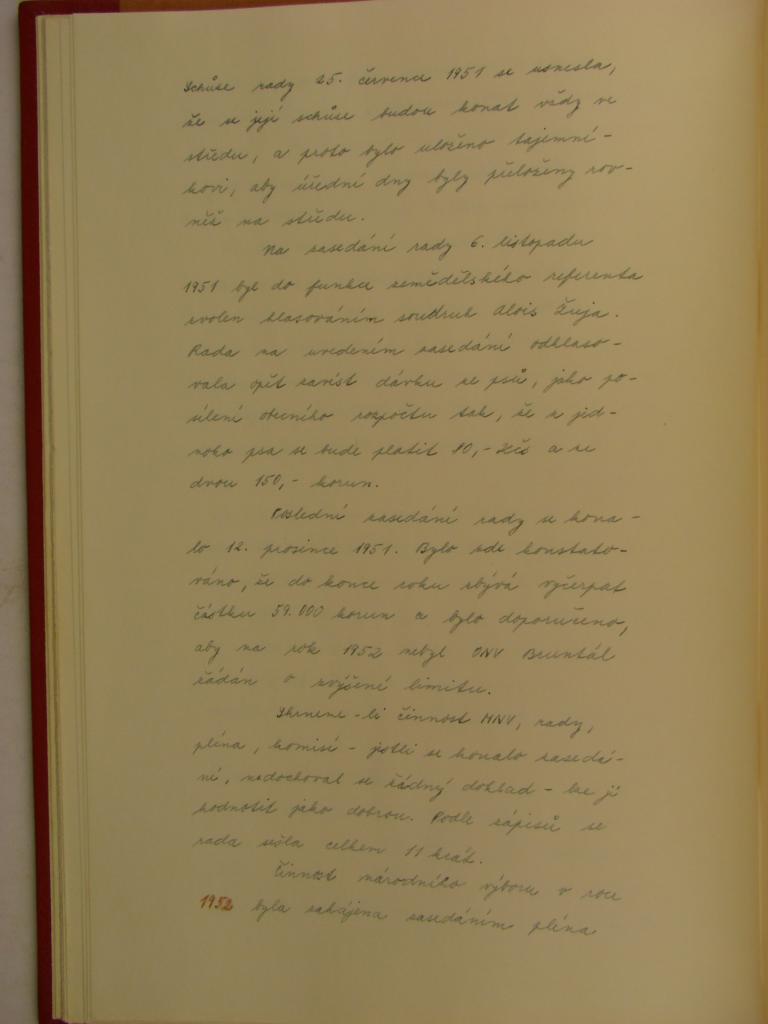 Schůse rady 25. července 1951 se usnesla,
že se její schůse budou konat vždy ve
středu, a proto bylo uloženo tajemní-
kovi, aby úřední dny byly přeloženy rov-
něž na středu.
Na zasedání rady 6. listopadu
1951 byl do funkce zemědělského referenta
zvolen hlasováním soudruh Alois Žuja.
Rada na uvedeném zasedání odhlaso-
vala opět zavést dávku ze psů, jako po-
sílení obecního rozpočtu tak, že z jed-
noho psa se bude platit 80,- Kčs a ze
dvou 150,- korun.
Poslední zasedání rady se kona-
lo 12. prosince 1951. Bylo zde konstato-
váno, že do konce roku zbývá vyčerpat
částku 59.000 korun a bylo doporučeno,
aby na rok 1952 nebyl ONV Bruntál
žádán o zvýšené limitu.
Shrneme-li činnost MNV, rady,
pléna, komisí - jestli se konalo zasedá-
ní, nedochoval se žádný doklad - lze ji
hodnotit jako dobrou. Podle zápisů se
rada sešla celkem 11 krát.
Činnost národního výboru v roce
1952 byla zahájena zasedáním pléna